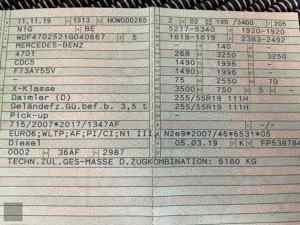 11,11,19 1313 HOW000260 2 02 195 /3400 205
N1G BE 5217-5340 1920-1920
WDF4702521G040667 5 1819-1819 2383-2492
MERCEDES-BENZ 140
470I 268 3250 3250
CDC5 1490 1996
F73AY55V 1490 1996
75 2550 70
X-Klasse 3500 750 5
Daimler (D) 255/55R19 111H
Geländefz.Gü.bef.b. 3,5 t 255/55R19 111H
Pick-up
715/2007*2017/1347AF
EURO6;WLTP;AF;PI/CI;N1 III, N2 e9*2007/46*6531*05
Diesel 05.03.19 K FP538784
0002 36AF 2987
TECHN.ZUL.GES-MASSE D.ZUGKOMBINATION: 6180 KG